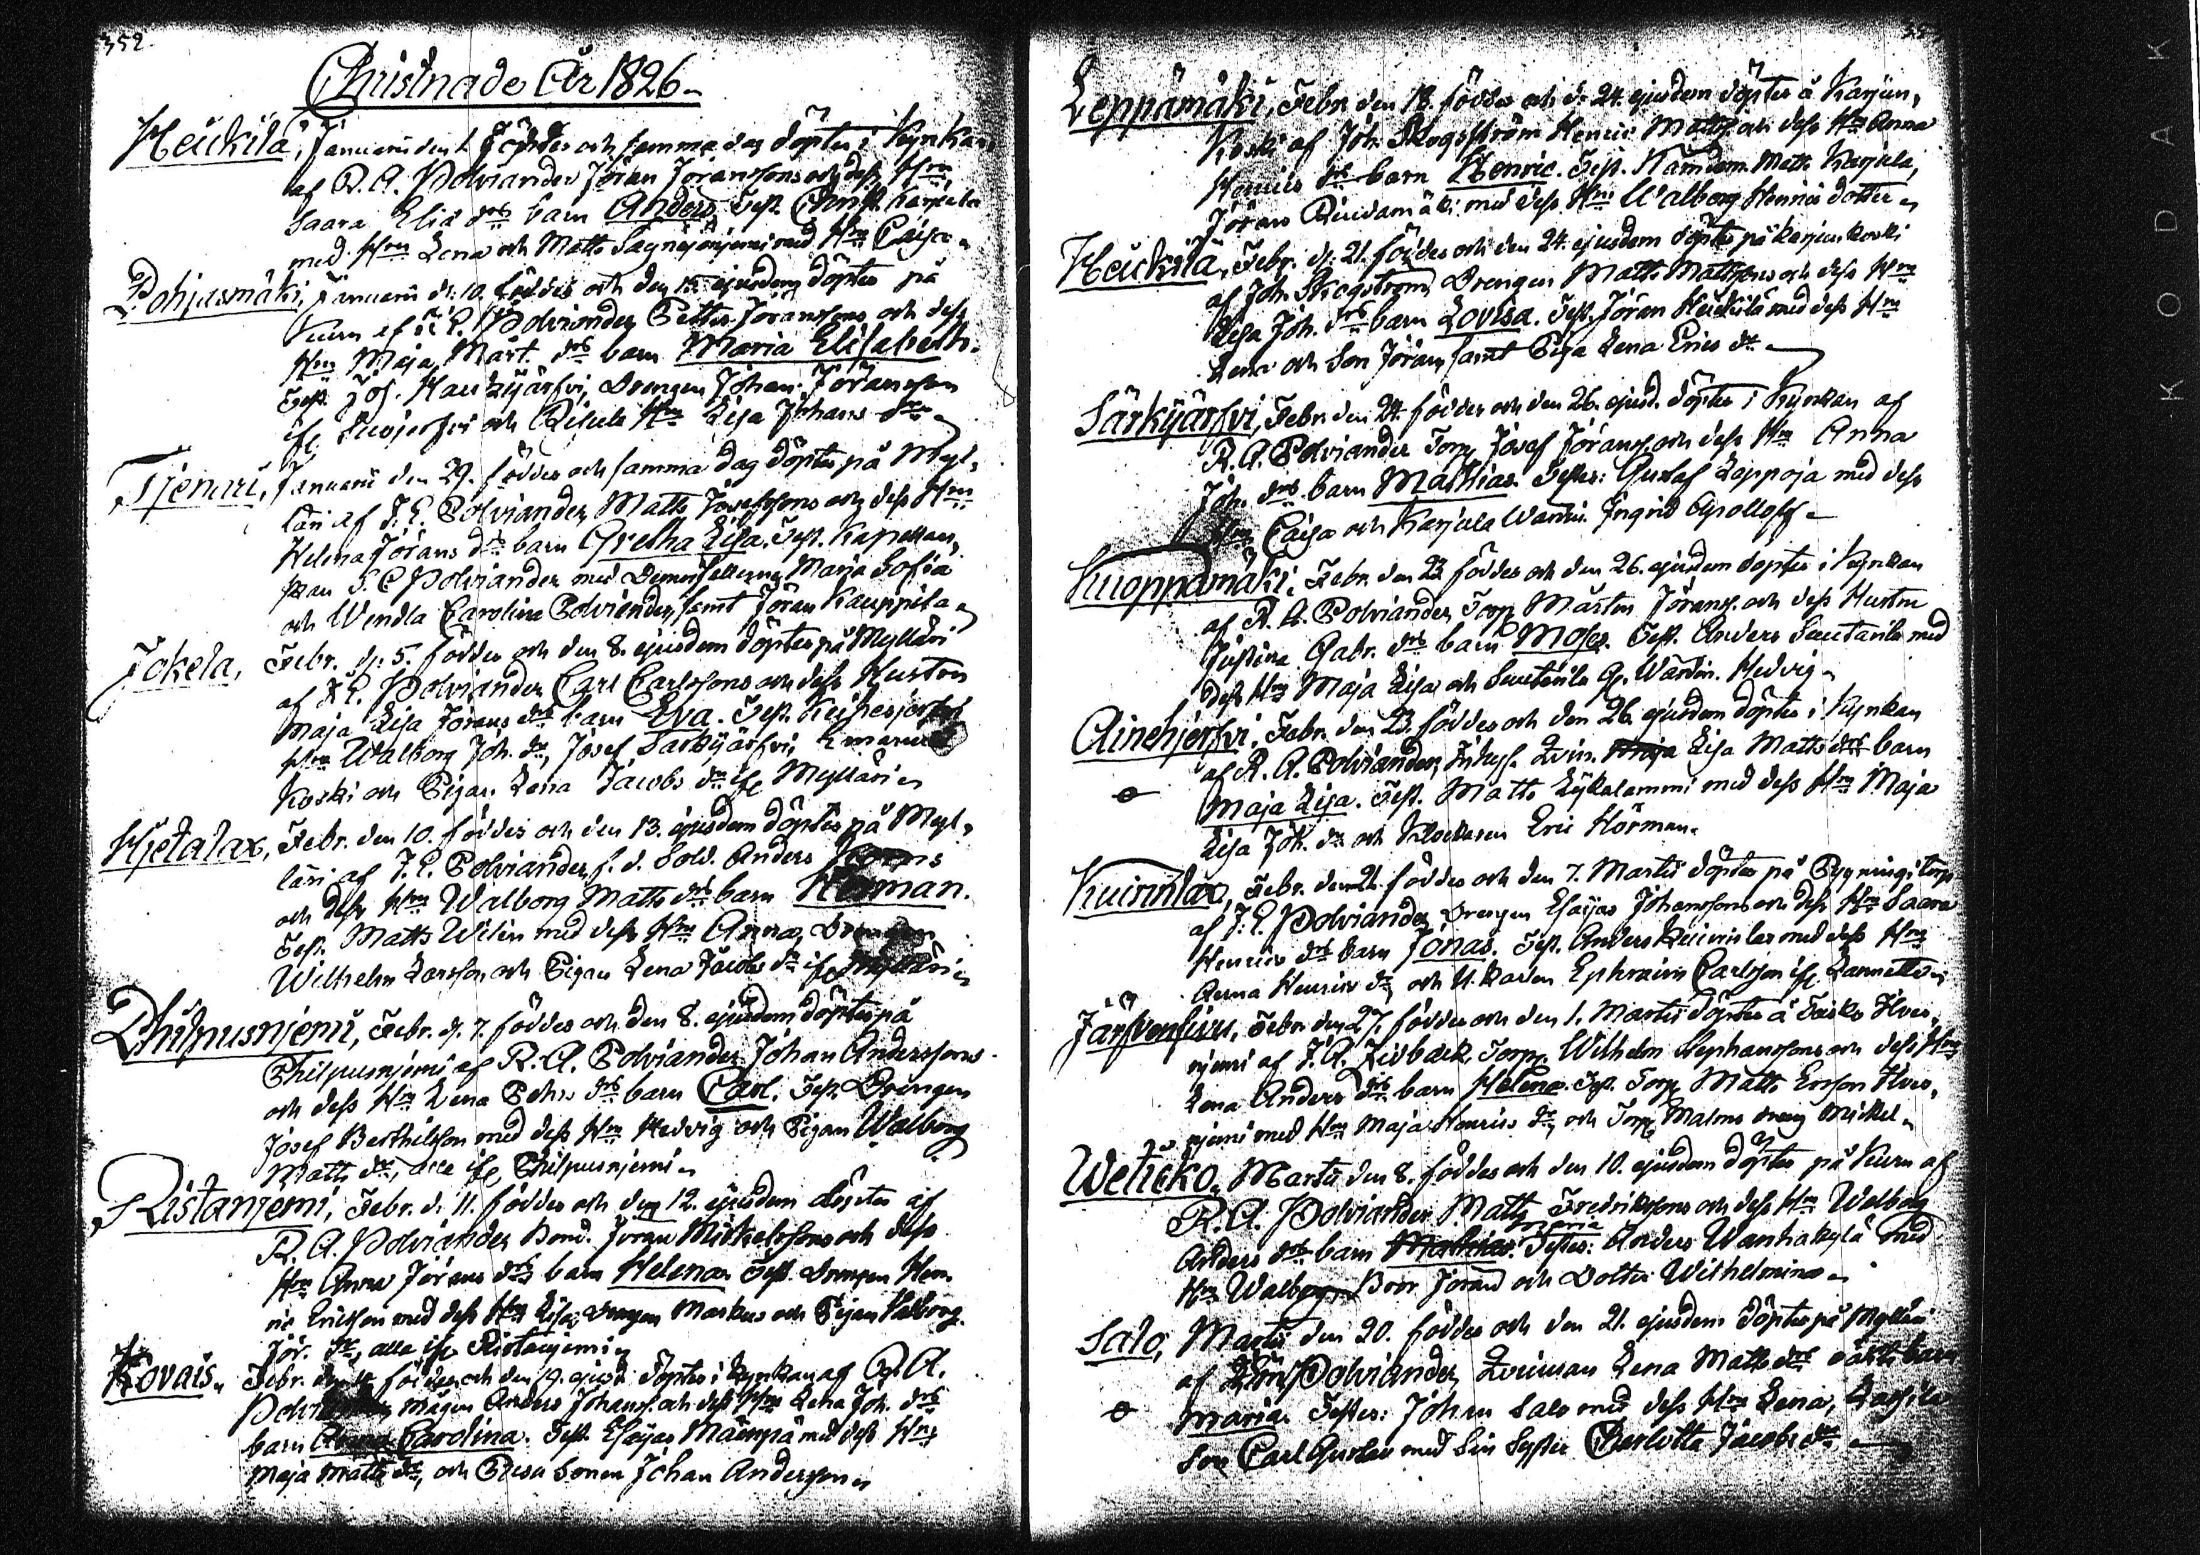 352
Christnade År 1826
Heickilä, Januarii den 1. föddes och samma dag döptes i Kyrkan
af R. A. Polviander Jöran Joranssons och dess Hru
Saara Eliæ drs barn Anders. Test. Christ. Karjula
med Hru Lena och Matts med Hru Caisa
Pohjasmäki, Januarii d. 10. föddes och den ejusdem döptes på
Kuru af Polviander Petter Joranssons och dess
Hru Maja Mårt. drs barn Maria Elisabeth.
Test. Jos. Haukijärfvi, Drengen Johan Joransson
och Hru Lisa Johans dr
Tjemmi, Januarii den 29. föddes och samma dag döptes på Myl-
läri af J. E. Polviander, Matts Josefssons och dess Hru
Helena Jörans drs barn Gretha Lisa. Test. Kapellans
frun S. C. Polviander med Demoisellerna Maria Sofia
och Wendla Carolina Polviander, samt Jöran Kauppila
Jokela, Febr. d. 5. föddes och den 8. ejusdem döptes på Mylläri
af J. E. Polviander Carl Carlssons och dess Hustru
Maja Lisa Jörans drs barn Eva. Test.
Hru Walborg Joh. dr, Josef Särkijärfvi,
koski och Pigan Lena Jacobs dr ifr. Mylläri
Hjetalax, Febr. den 10. föddes och den 13. ejusdem döptes på Myl-
läri af J. E. Polviander, f. d. Sold. Anders
och dess Hru Walborg Matts drs barn Herman.
Test. Matts Wilén med dess Hru Anna, Drengen
Wilhelm Larsson och Pigan Lena Jacobs dr ifr. Mylläri
Philpusnjemi, Febr. d. 7. föddes och den 8. ejusdem döptes på
Philpusnjemi af R. A. Polviander Johan Anderssons
och dess Hru Lena Pehrs drs barn Carl. Test. Drengen
Josef Berthilsson med dess Hru Hedvig och Pigan Walborg
Matts dr, alla ifr. Philpusnjemi
Ristanjemi, Febr. d. 11. föddes och den 12. ejusdem döptes af
R. A. Polviander Bond. Jöran Mickelssons och dess
Hru Anna Jörans drs barn Helena. Test. Drengen Hen-
ric Ericsson med dess Hru Lisa, Drengen Markus och Pigan Walborg
Jör. dr, alla ifr. Ristanjemi
Kovais, Febr. den föddes och den 19. ejusd. döptes i Kyrkan af R. A.
Polviander, mågen Anders Johanss. och dess Hru Lena Joh. drs
barn Anna Carolina. Test. Esajas Mäenpä med dess Hru
Maja Matts dr, och Sonen Johan Andersson
Leppämäki, Febr. den 18. föddes och d. 24. ejusdem döptes å Karjun-
koski af Joh. Skogström Henric Mattss. och dess Hru Anna
Henrics drs barn Henric. Test. Nämdem. Matts Karjula,
Jöran med dess Hru Walborg Henrics dotter
Heickilä, Febr. d. 21. föddes och den 24. ejusdem döptes på Karjunkoski
af Joh. Skogström, Drengen Matts Mattssons och dess Hru
Lisa Joh. drs barn Lovisa. Test. Jöran Heickilä med dess Hru
Lena och Son Jöran, samt Piga Lena Erics dr
Särkijärfvi, Febr. den 24. föddes och den 26. ejusd. döptes i Kyrkan af
R. A. Polviander Torp. Josef Jöranss. och dess Hru Anna
Joh. drs barn Mathias. Testes: Gustaf Leppoja med dess
Hru Caisa och Karjula Wärdin. Ingrid Apolloff
Kuoppamäki, Febr. den 23. föddes och den 26. ejusdem döptes i Kyrkan
af R. A. Polviander, Torp. Mårten Jöranss. och dess Hustru
Justina Gabr. drs barn Moses. Test. Anders Sautarila med
dess Hru Maja Lisa och Wärdin. Hedvig
Ainehjerfvi, Febr. den 23. föddes och den 26. ejusdem döptes i Kyrkan
af R. A. Polviander, Inhys. Qvin. Lisa Matts drs barn
Maja Lisa. Test. Matts Lykalammi med dess Hru Maja
Lisa Joh. dr och Klockaren Eric Hörman.
Kuivinlax, Febr. den 21. föddes och den 7. Martii döptes på
af J. E. Polviander, Drengen Esajas Johanssons och dess Hru Saara
Henrics drs barn Jonas. Test. Anders Kuivinlax med dess Hru
Anna Henrics dr, och Ephraim Carlsson ifr.
Järfvenfuu, Febr. den 27. föddes och den 1. Martii döptes å
njemi af J. A. Lidbäck Torp. Wilhelm Stephanssons och dess Hru
Lena Anders drs barn Helena. Test. Torp. Matts Ersson
njemi med Hru Maja Henrics dr, och Torp. dreng Mickel
Weticko, Martii den 8. föddes och den 10. ejusdem döptes på Kuru af
R. A. Polviander Matts Fredrikssons och dess Hru Walborg
Anders drs barn Maria. Testes: Anders Wanhakylä med
Hru Walborg, Bror Jöran och Dotter Wilhelmina
Salo, Martii den 20. föddes och den 21. ejusdem döptes på Mylläri
af Polviander, Qvinnan Lena Matts drs oäkta barn
Maria. Testes: Johan Salo med dess Hru Lena,
Son Carl Gustav med Sin Syster Charlotta Jacobs dr
KODAK